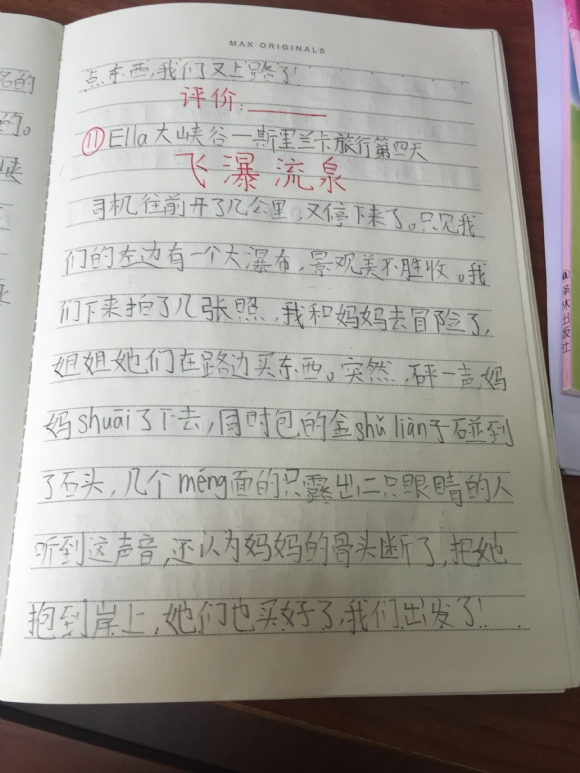 MAX ORIGINALS
点东西,我们又上路了!
评价:
⑪Ella大峡谷—斯里兰卡旅行第四天
飞瀑流泉
司机往前开了几公里,又停下来了。只见我
们的左边有一个大瀑布,景观美不胜收。我
们下来拍了几张照,我和妈妈去冒险了,
姐姐她们在路边买东西。突然,砰一声,妈
妈shuāi了下去,同时包的金shǔ liàn子碰到
了石头,几个méng面的只露出二只眼睛的人
听到这声音,还以为妈妈的骨头断了,把她
抱到岸上,她们也买好了,我们出发了!
的
的。
峡
译林出版社